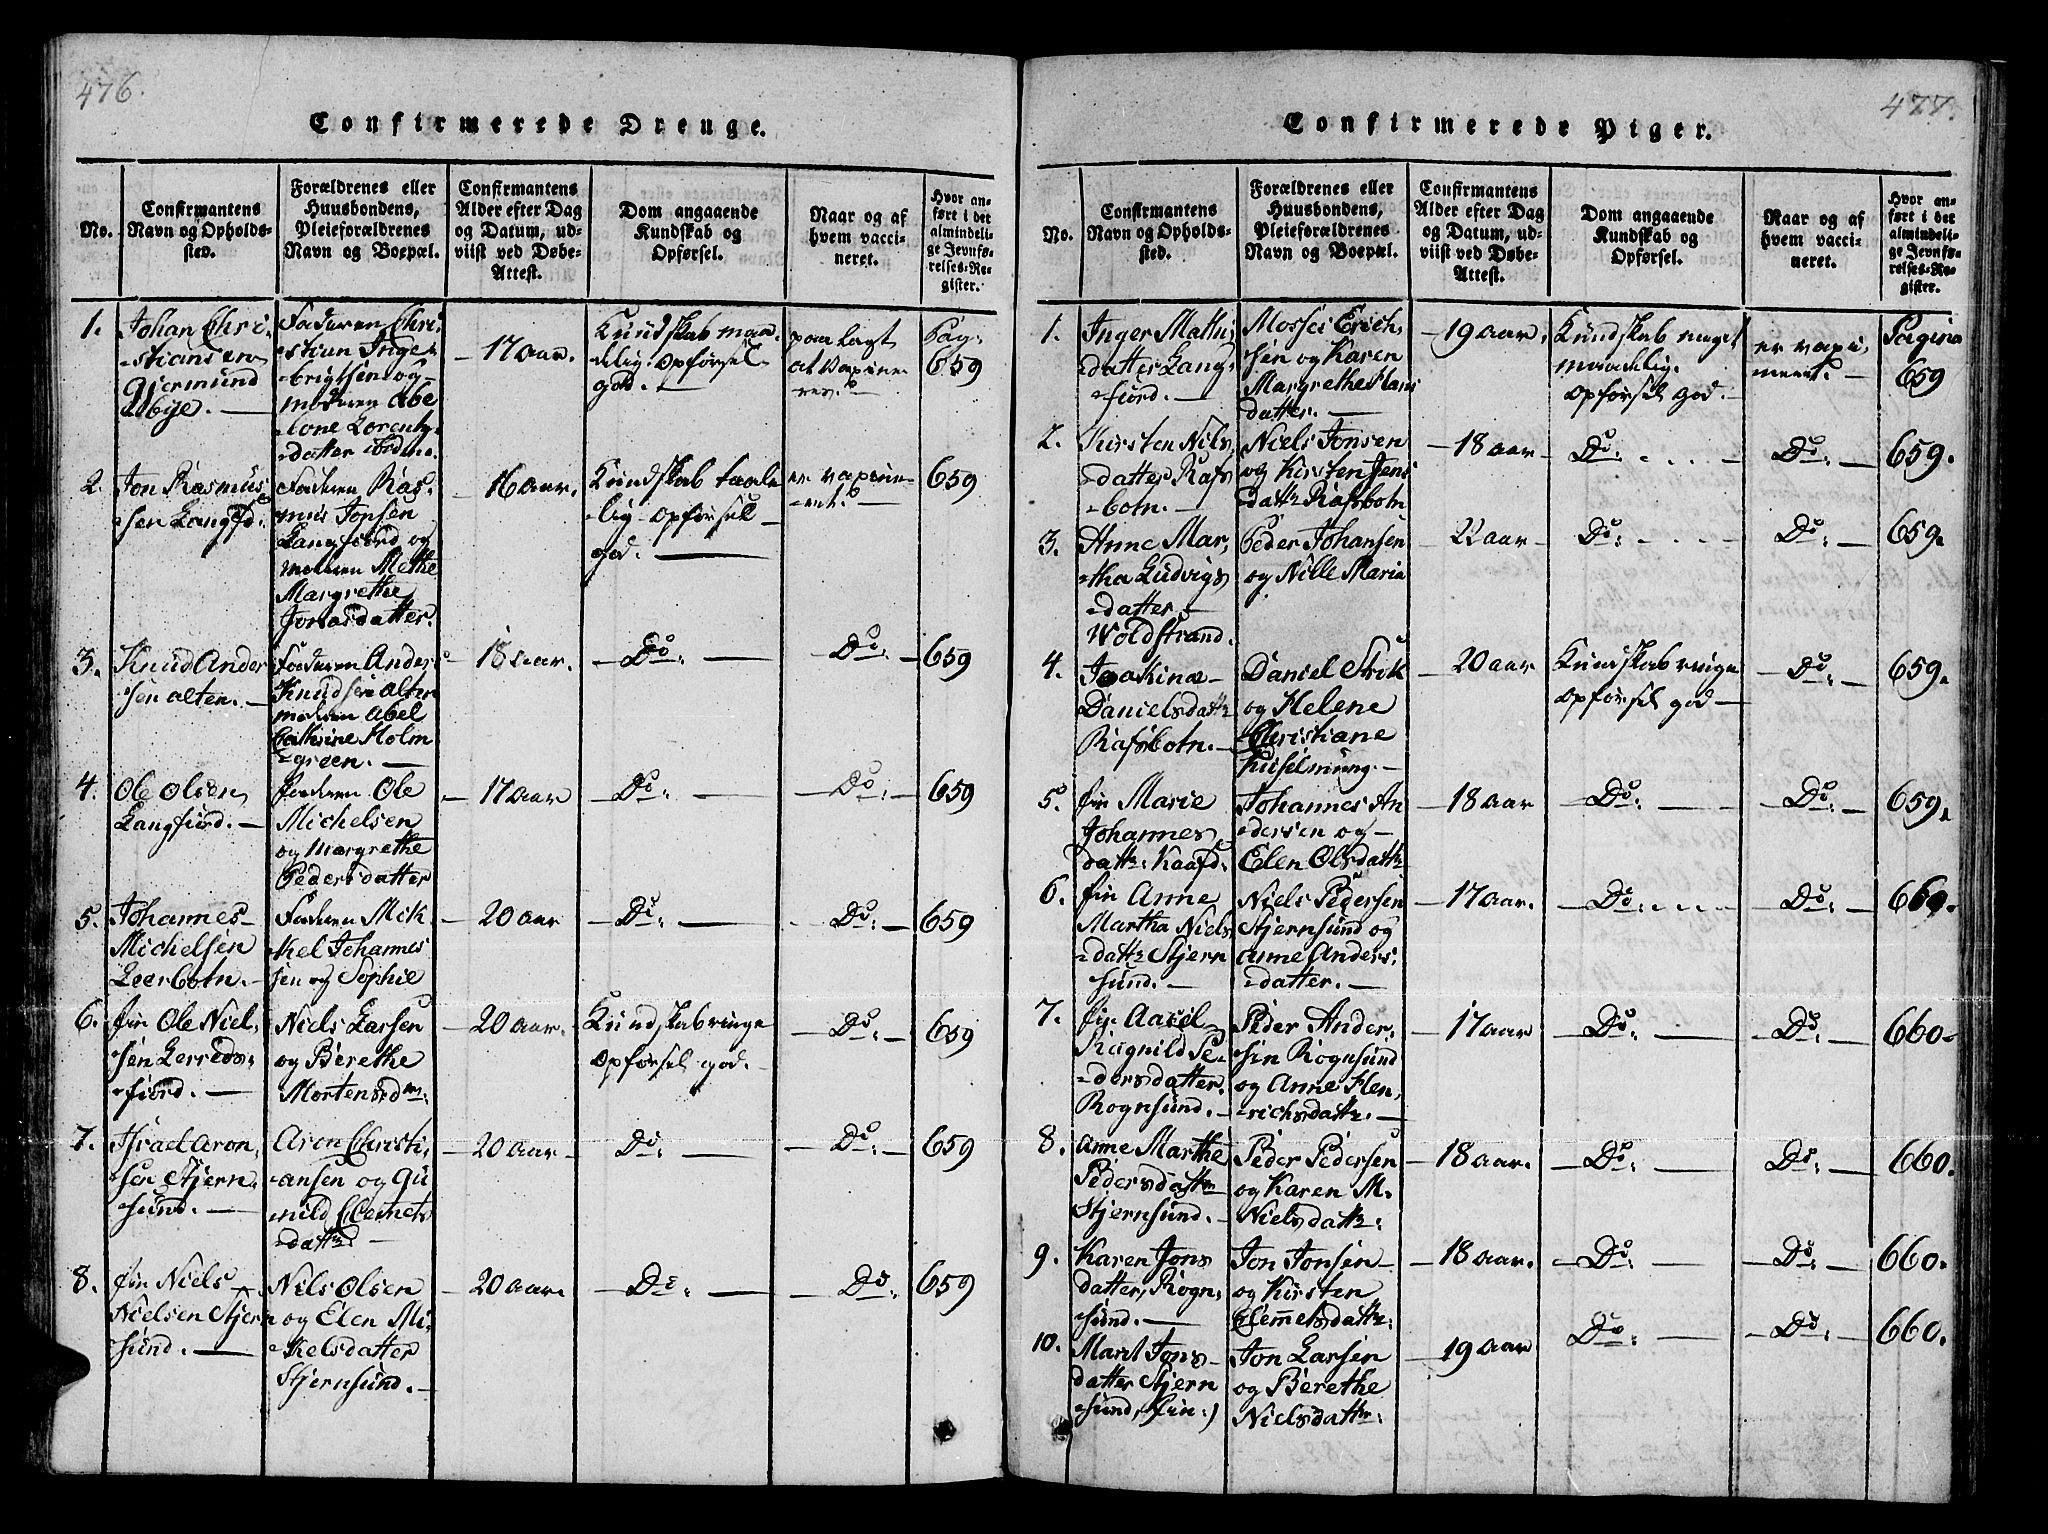 476.
Confirmerede Drenge.
No.
Confirmantens
Navn og Opholds-
sted.
Forældrenes eller
Huusbondens,
Pleieforældrenes
Navn og Boepæl.
Confirmantens
Alder efter Dag
og Datum, ud-
viist ved Døbe-
Attest.
Dom angaaende
Kundskab og
Opførsel.
Naar og af
hvem vacci-
neret.
Hvor an-
ført i det
almindeli-
ge Jevnfø-
relses-Re-
gister.
1.
Johan Chri
-stiansen
Gjermund
Fadern Chri-
stian Inge-
-brigtsen og
moderen Abe
-lone Lorents
-datter
17 aar.
Kundskab maa-
delig opførsel
god. —
paalagt
at vaxine-
res.
Pag:
659
2.
Jon Rasmus
sen Langfd.
Faderen Ras-
mus Jopsen
Langfiord og
moderen Methe
Margrethe
Jonasdatter.
16 aar.
Kundskab taale
-lig opførsel
god. —
er vaxine-
-ret.
659
3.
Knud Ander
sen alten. —
Faderen Anders
Knudsen alten
moderen Abel
Cathrine Holm
-green. —
18 aar.
— Do: —
— Do: —
659
4.
Ole Olsen
Langfiord. —
Faderen Ole
Michelsen
og Margrethe
Pedersdatter
17 aar
— Do: —
— Do: —
659
5.
Johannes
Michelsen
Leerbotn. —
Faderen Mik
-kel Johannes
sen og Sophie
20 aar
— Do: —
Do: —
659
6.
fin Ole Niel-
sen Lerreds-
-fiord. —
Niels Larsen
og Berethe
Mortensd
20 aar.
Kundskab ringe
opførsel god. —
— Do: —
659
7.
Israel Aron-
sen Stjern-
sund. —
Aron Christi-
-ansen og Gu
-nild Clemets
-datter
20 aar
Do: —
— Do: —
659
8.
fin Niels
Nielsen Stjern
sund. —
Nils Olsen
og Elen Mi-
-kelsdatter
Stjernsund. —
20 aar.
— Do: —
— Do: —
659
477.
Confirmerede Piger.
No.
Confirmantens
Navn og Opholds-
sted.
Forældrenes eller
Huusbondens,
Pleieforældrenes
Navn og Boepæl.
Confirmantens
Alder efter Dag
og Datum, ud-
viist ved Døbe-
Attest.
Dom angaaende
Kundskab og
Opførsel.
Naar og af
hvem vacci-
neret.
Hvor an-
ført i det
almindeli-
ge Jevnfø-
relses-Re-
gister.
1.
Inger Mathis
datter Lang-
fiord. —
Moses Erich-
sen og Karen
Margrethe Hans
datter. —
19 aar.
Kundskab meget
maadelig.
opførsel god. —
er vaxi-
neret. —
Pagina
659
2.
Kirsten Nils
-datter Rafs
-botn. —
Niels Jonsen
og Kirsten Jens
datter Rafsbotn
18 aar
Do:
Do: —
659.
3.
Anne Mar-
-tha Ludvigs
-datter
Woldstrand.
Peder Johansen
og Nille Maria
22 aar
Do:
Do: —
659.
4.
Joakina
Danielsdatter
Rafsbotn. —
Daniel Strik
og Helene
Christiane
20 aar
Kundskab ringe
opførsel god —
Do: —
659.
5.
fin Marie
Johannes
datter Kaafd.
Johannes An
-dersen og
Elen Olsdatter
18 aar
— Do: —
Do: —
659.
6.
fin Anne
Martha Niels
-datter Stjern
sund. —
Niels Pedersen
Stjernsund og
Anne Anders-
-datter. —
17 aar.
— Do:
Do: —
660.
7.
fin
Ragnild Pe-
-dersdatter.
Rognsund. —
Peder Ander-
sen Rognsund
og Anne Hen-
-richsdatter. —
17 aar
— Do: —
— Do: —
660.
8.
Anne Marthe
Pedersdatter
Stjernsund. —
Peder Pedersen
og Karen M.
Nielsdatter
18 aar.
— Do: —
Do: —
660.
9.
Karen Jons
datter, Rogn-
sund. —
Jon Jonsen
og Kirsten
Clemetsdatter
18 aar.
— Do: —
— Do: —
660.
10.
Marit Jons-
datter Stjern
sund, (fin:)
Jon Larsen
og Berethe
Nielsdatter
19 aar
Do: —
— Do: —
660.